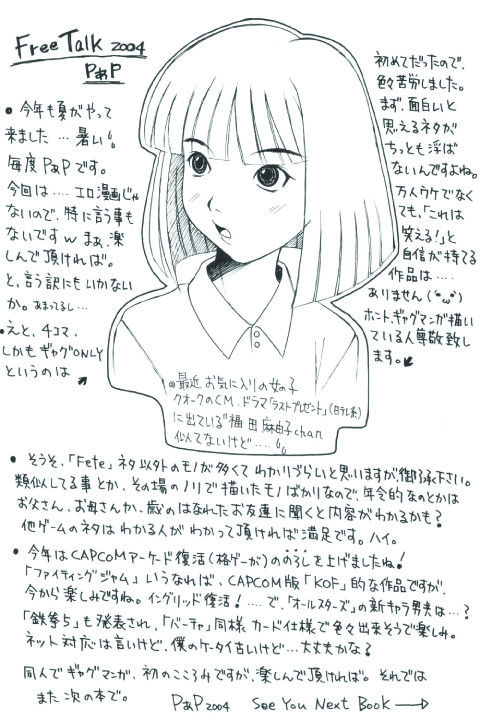 Free Talk 2004
PぁP
● 今年も夏がやって
来ました … 暑い。
毎度 PぁPです。
今回は…. エロ漫画じゃ
ないので、特に言う事も
ないです w まぁ、楽
しんで頂ければ。
と、言う訳にもいかない
か。あまってるし…
● えと、4コマ、
しかもギャグONLY
というのは
初めてだったので、
色々苦労しました。
まず、面白いと
思えるネタが
ちっとも浮ば
ないんですよね。
万人ウケでなく
ても、「これは
笑える!」と
自信が持てる
作品は….
ありません (´・ω・`)
ホント、ギャグマンガ描い
ている人尊敬致し
ます。
◎最近お気に入りの女の子
クオークのCM、ドラマ「ラストプレゼント」(日テレ系)
に出ている"福田麻由子chan
似てないけど…..
● そうそ、「Fete」ネタ以外のモノが多くてわかりづらいと思いますが、御了承下さい。
類似してる事とか、その場のノリで描いたモノばかりなので、年令的なのとかは
お父さん、お母さんか、歳のはなれたお友達に聞くと内容がわかるかも?
他ゲームのネタはわかる人がわかって頂ければ満足です。ハイ。
● 今年はCAPCOMアーケード復活(格ゲーが)ののろしを上げましたね!
「ファイティングジャム」いうなれば、CAPCOM版「KOF」的な作品ですが、
今から楽しみですね。イングリッド復活! …. で、「オールスターズ」の新キャラ男夫は…?
「鉄拳5」も発表され、「バーチャ」同様カード仕様で色々出来そうで楽しみ。
ネット対応は言いけど、僕のケータイ古いけど…大丈夫かな?
同人でギャグマンガ、初のこころみですが、楽しんで頂ければ。それでは
また次の本で。
PぁP 2004 See You Next Book